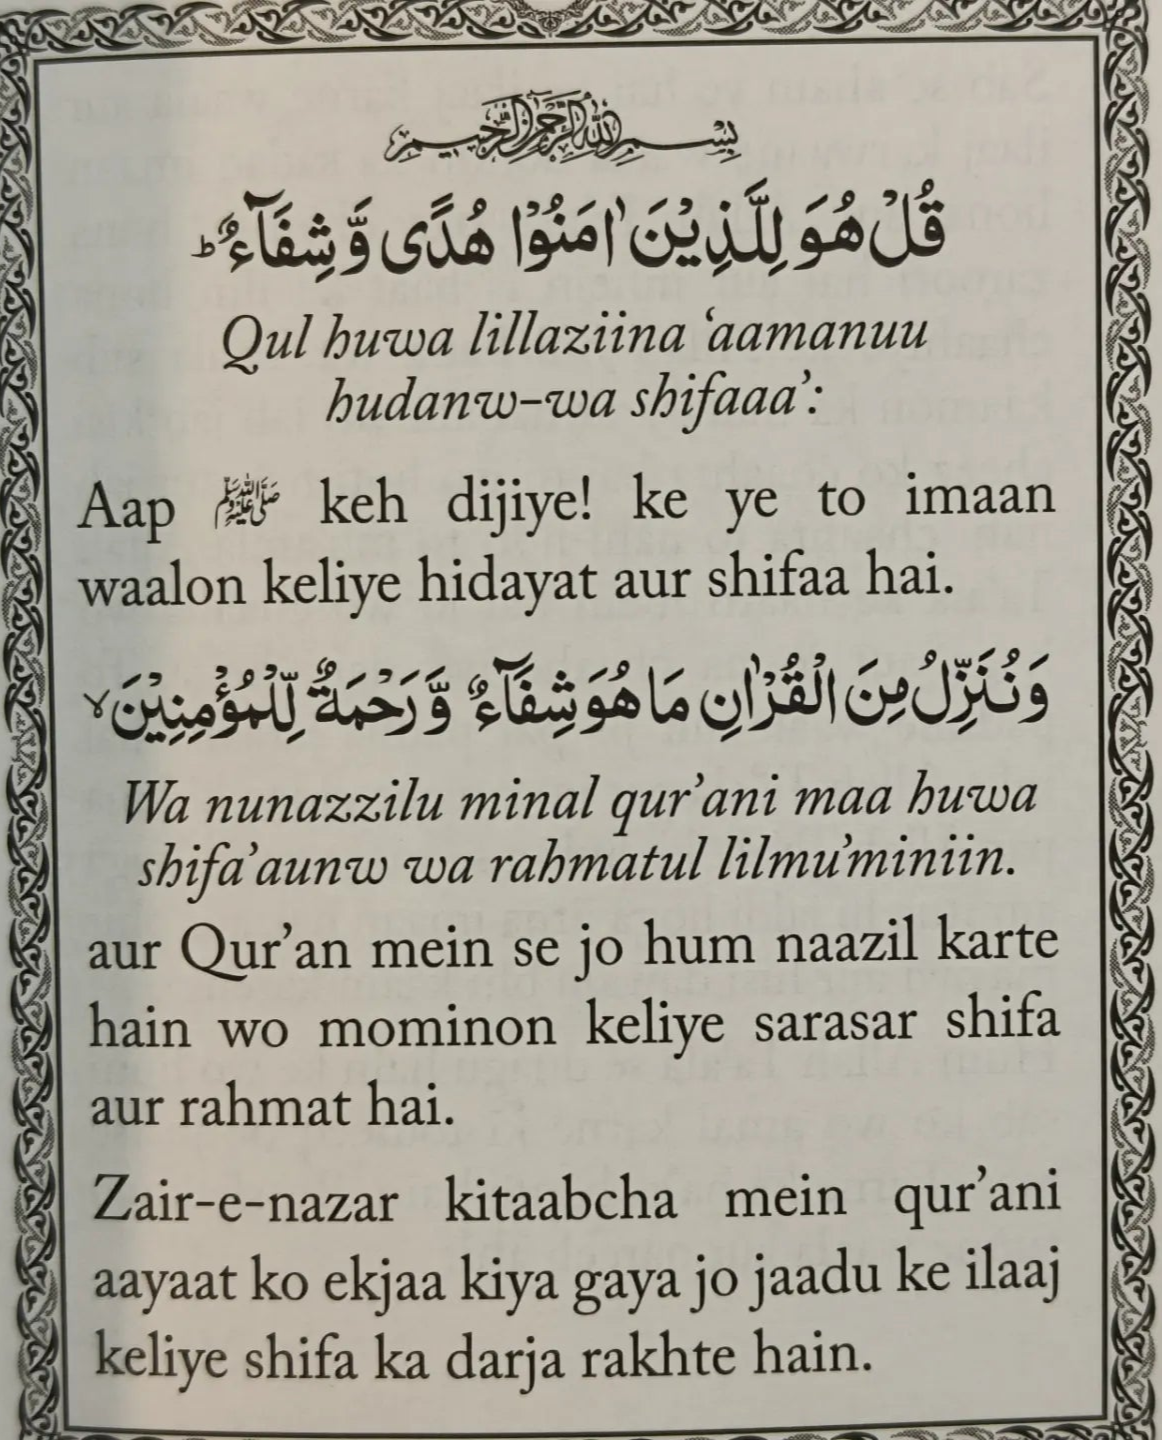 بِسْمِ اللهِ الرَّحْمٰنِ الرَّحِيْمِ
قُلْ هُوَ لِلَّذِيْنَ اٰمَنُوْا هُدًى وَّشِفَآءٌ ؕ
Qul huwa lillaziina ‘aamanuu
hudanw-wa shifaaa’:
Aap ﷺ keh dijiye! ke ye to imaan
waalon keliye hidayat aur shifaa hai.
وَنُنَزِّلُ مِنَ الْقُرْاٰنِ مَا هُوَ شِفَآءٌ وَّرَحْمَةٌ لِّلْمُؤْمِنِيْنَ ۙ
Wa nunazzilu minal qur’ani maa huwa
shifa’aunw wa rahmatul lilmu’miniin.
aur Qur’an mein se jo hum naazil karte
hain wo mominon keliye sarasar shifa
aur rahmat hai.
Zair-e-nazar kitaabcha mein qur’ani
aayaat ko ekjaa kiya gaya jo jaadu ke ilaaj
keliye shifa ka darja rakhte hain.